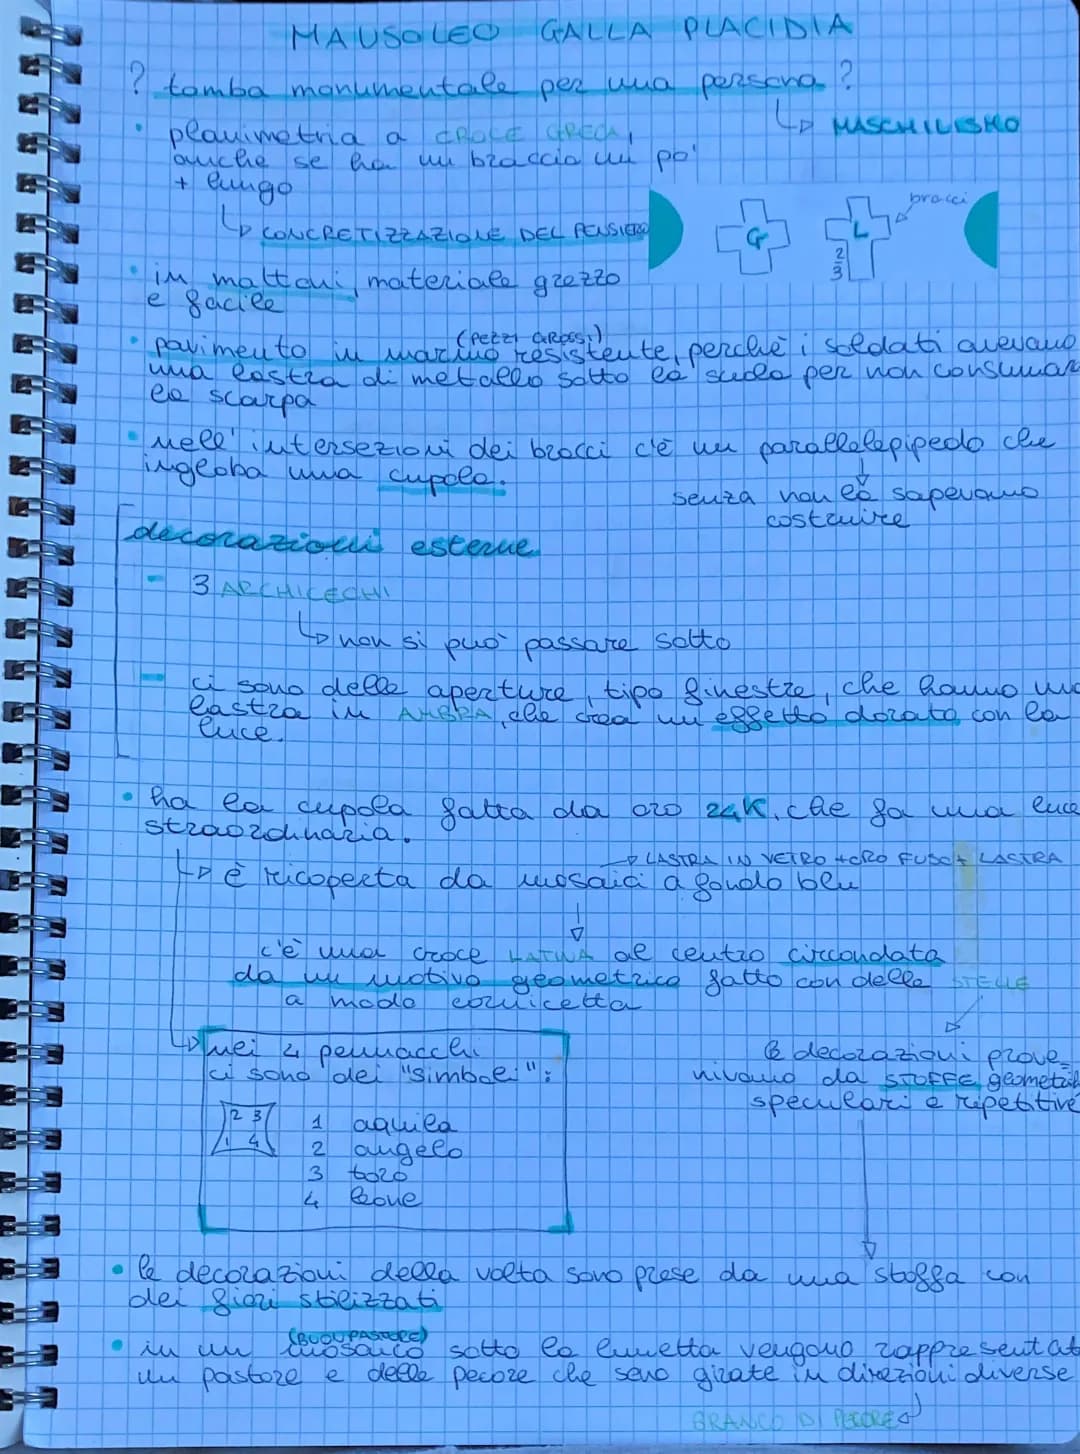 MAUSOLEO GALLA PLACIDIA
? tomba monumentale per una persona ?
↳ MASCHILISMO
• planimetria a CROCE GRECA,
anche se ha un braccio un po'
+ lungo
↳ CONCRETIZZAZIONE DEL PENSIERO
G L bracci
2/3
• in mattoni, materiale grezzo
e facile
(PEZZI GROSSI)
• pavimento in marmo resistente, perchè i soldati avevano
una lastra di metallo sotto la suola per non consumar
la scarpa
• nell'intersezioni dei bracci c'è un parallelepipedo che
ingloba una cupola.
senza non la sapevano
costruire
decorazioni esterne
- 3 ARCHICECHI
↳ non si può passare sotto
- ci sono delle aperture, tipo finestre, che hanno una
lastra in AMBRA, che crea un effetto dorato con la
luce.
• ha la cupola fatta da oro 24K, che fa una luce
straordinaria.
→ LASTRA IN VETRO + ORO FUSO + LASTRA
↳ è ricoperta da mosaici a fondo blu
c'è una croce LATINA al centro circondata
da un motivo geometrico fatto con delle STELLE
a modo cornicetta
↳ nei 4 pennacchi
ci sono dei "simboli":
2 3
1 4
1 aquila
2 angelo
3 toro
4 leone
le decorazioni prove-
nivano da STOFFE geometric
speculari e ripetitive
• le decorazioni della volta sono prese da una stoffa con
dei fiori stilizzati
(BUON PASTORE)
• in un mosaico sotto la lunetta vengono rappresentat
un pastore e delle pecore che sono girate in direzioni diverse
BRANCO DI PECORE